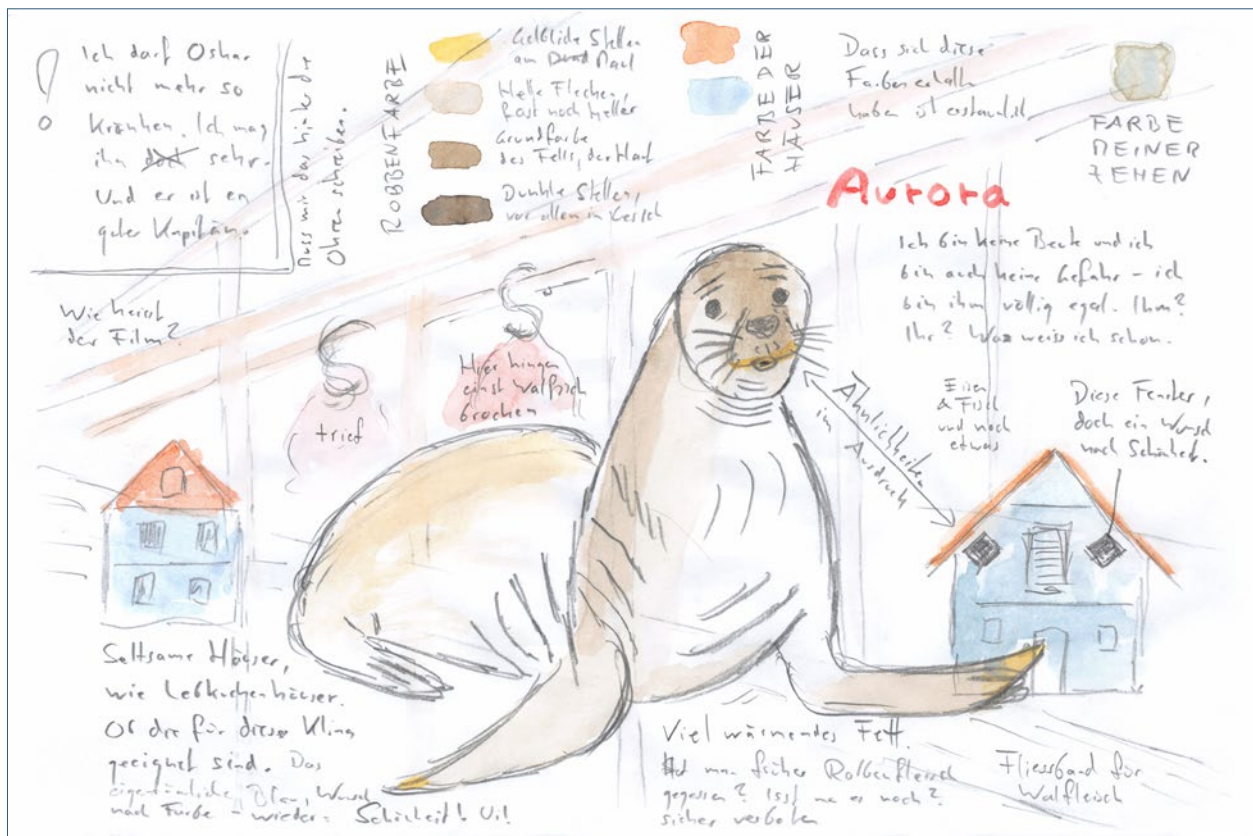 !
Ich darf Oskar
nicht mehr so
kränken. Ich mag
ihn sehr.
Und er ist ein
guter Kapitän.
Muss mir das hinter die
Ohren schreiben.
ROBBENFARBE
Gelbliche Stellen
am Maul
Helle Flecken,
Rest noch heller
Grundfarbe
des Fells, der Haut
Dunkle Stellen,
vor allem im Gesicht
FARBE DER
HÄUSER
Dass sich diese
Farben erhalten
haben ist erstaunlich.
FARBE
MEINER
ZEHEN
Aurora
Ich bin keine Beute und ich
bin auch keine Gefahr – ich
bin ihm völlig egal. Ihm?
Ihr? Was weiss ich schon.
Wie heisst
der Film?
trief
Hier hingen
einst Walfisch
brocken
Ähnlichkeiten
im
Ausdruck
Eisen
& Fisch
und noch
etwas
Diese Fenster,
doch ein Wunsch
nach Schönheit.
Seltsame Häuser,
wie Lebkuchenhäuser.
Ob die für dieses Klima
geeignet sind. Das
eigentümliche Blau, Wunsch
nach Farbe – wieder: Schönheit! Ui!
Viel wärmendes Fett.
Hat man früher Robbenfleisch
gegessen? Isst man es noch?
sicher verboten
Fliessband für
Walfleisch